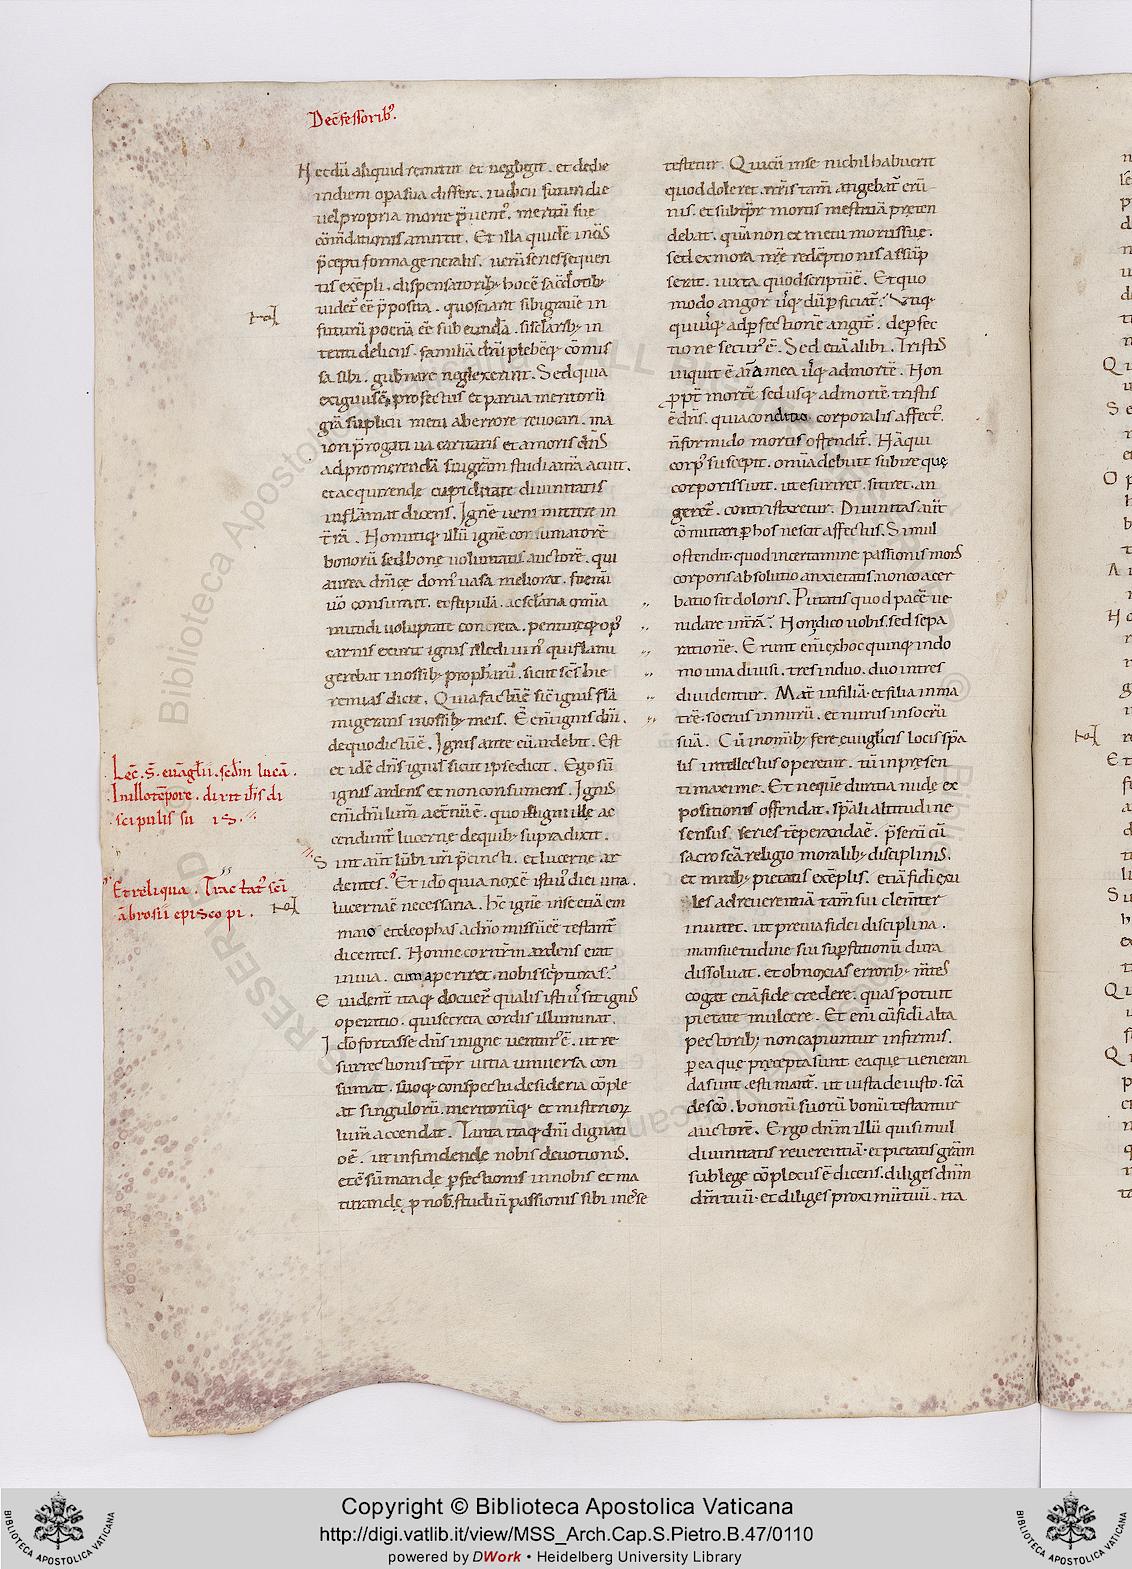 Dec̄fessorib᷒.
Et dū aliquid remittit et neglegit. et de die
in diem opa sua differt. iudicii futuri die
uel propria morte p̄uent᷒. meritū sue
cōm̄dationis amittit. Et illa quidē in om̄s
p̄cepti forma generalis. uerū series sequen
tis exēpli. dispensatorib; hoc ē sac̄dotib;
uidet᷒ ēē p̄posita. quo sciant sibi graue in
futurū poenā ēē subeundā. si sc̄larib; in
tenti deliciis. familiā dn̄i plebēq; cōmis
sa sibi. gub̄nare neglexerint. Sed quia
exiguus ē profectus et parua meritorū
gr̄a supplicii metu ab errore reuocari. ma
ior p̄rogatiua caritatis et amoris dn̄s
ad promerendā sui gr̄am studia nr̄a acuit.
et acquirendę cupiditate diuinitatis
inflāmat dicens. Ignē ueni mittere in
t̄rā. Non utiq; illū ignē consumatorē
bonorū sed bonę uoluntatis auctorē. qui
aurea dn̄icę dom᷒ uasa meliorat. fenū
ū̄o consumit. et stipulā. ac sc̄laria om̄ia
mundi uoluptate concreta.
carnis exurit ignis ille diuin᷒ qui flam
gerebat in ossib; prophar̄ū. sicut sc̄s hie
remias dicit. Qui a factus ē sic ignis flā
migerans in ossib; meis. Ē en̄i ignis dn̄i.
de quo dictū ē. Ignis ante eū ardebit. Est
et idē dn̄s ignis sicut ipse dicit. Ego sū
ignis ardens et non consumens. Ignis
eni dn̄i lum̄ aet̄nū ē. quo isti igni illę ac
cendunt̄ lucernę de quib; supra dixit.
Sint aut̄ lūbi ur̄i p̄cincti. et lucernę ar
dentes. Et ido quia nox ē istius diei uita.
lucerna ē necessaria. hc̄ ignē in se etiā em
maio et cleophas a dn̄o missū ēē testant̄
dicentes. Nonne cor nr̄m ardens erat
in uia. cum aperiret nobis sc̄pturas?
Euident̄ itaq; docuer̄ qualis isti᷒ sit ignis
operatio. qui secreta cordis illuminat.
Ido fortasse dn̄s in igne uentur᷒ ē. ut re
surrectionis tēpr uitia uniuersa con
sumat. suoq; conspectu desideria cōple
at singulorū. meritorūq; et misteriorꝝ
lum̄ accendat. Tanta itaq; dn̄i dignati
o ē. ut infundendę nobis deuotionis.
et cēsūmandę p̄fectionis in nobis et ma
turandę p nob. studiū passionis sibi inēsse
Lec̄. s̄. euāglīi. sedm̄ lucā.
In illo tēpore. dixit ih̄s di
scipulis su is.
Et reliqua. Tractat᷒ sc̄i
ābrosii episcopi.
testetur. Qui cū in se nichil habuerit
quod doleret. nr̄is tam̄ angebat̄ erū
nis. et sub tēpr mortis mestitiā pręten
debat. quā non ex metu mortis suę.
sed ex mora nr̄e redēptionis assūp
serit. iuxta quod scriptū ē. Et quo
modo angor usq; dū p̄ficiat̄? Vtiq;
qui usq; ad p̄fectionē angit̄. de p̄fec
tione secur᷒ ē. Sed etiā alibi. Tristis
inquit ē anima mea usq; ad mortē. Non
ꝓpt̄ mortē sed usq; ad mortē tristis
ē dn̄s. quia conditio corporalis affect᷒.
n̄ formido mortis ostendit̄. Nā qui
corp᷒ suscepit. omīa debuit subire quę
corporis sunt. ut esuriret. sitiret. an
geret̄. contristaretur. Diuinitas aut̄
cōmutari p̄ hos nescit affectus. Simul
ostendit. quod in certamine passionis mors
corporis absolutio anxietatis. non coacer
batio sit doloris. Putatis quod pacē ue
ni dare in t̄rā? Non dico uobis. sed sepa
rationē. Erunt en̄i ex hoc quinq; in do
mo una diuisi. tres in duo. duo in tres
diuidentur. Mat̄ in filiā. et filia in ma
trē. socrus in nurū. et nurus in socrū
suā. Cū in om̄ib; fere euuglicis locis sp̄a
lis intellectus operetur. tū in presen
ti maxime. Et ne quē duritia nudę ex
positionis offendat. sp̄ali altitudine
sensus series tēperanda ē. p̄sertī cū
sacro sc̄a religio moralib; disciplinis.
et mitib; pietatis exēplis. etiā fidei exu
les ad reuerentiā tam̄ sui clement̄er
inuitet. ut preuia fidei disciplina.
mansuetudine sui sup̄stitionū dura
dissoluat. et obnoxias errorib; mētes
cogat etiā fide credere. quas potuit
pietate mulcere. Et eni cū fidī alta
pectorib; non capiuntur infirmis.
p̄ ea quę pręcepta sunt ea quę ueneran
da sunt. estimant̄. ut iusta de iusto. sc̄a
de sc̄o. bonorū suorū bonū testantur
auctorē. Ergo dn̄m illū qui simul
diuinitatis reuerentiā. et pietatis gr̄am
sub lege cōplexus ē dicens. diliges dn̄m
dm̄ tuū. et diliges proximū tuū. ita
Copyright © Biblioteca Apostolica Vaticana
http://digi.vatlib.it/view/MSS_Arch.Cap.S.Pietro.B.47/0110
powered by DWork • Heidelberg University Library